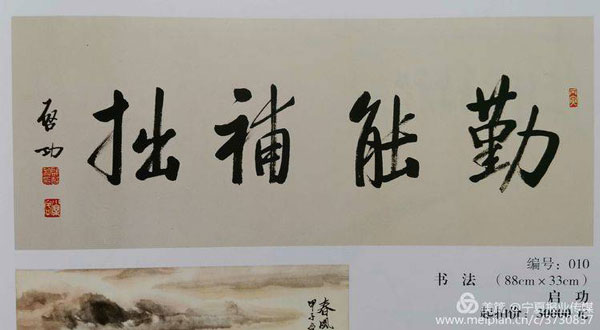 勤能補拙
啓功
编号：010
书 法 （88cm×33cm）
启 功
起拍价：50000 元
春風
美篇 @宁夏拥业传媒
meipian.cn/c/3730857